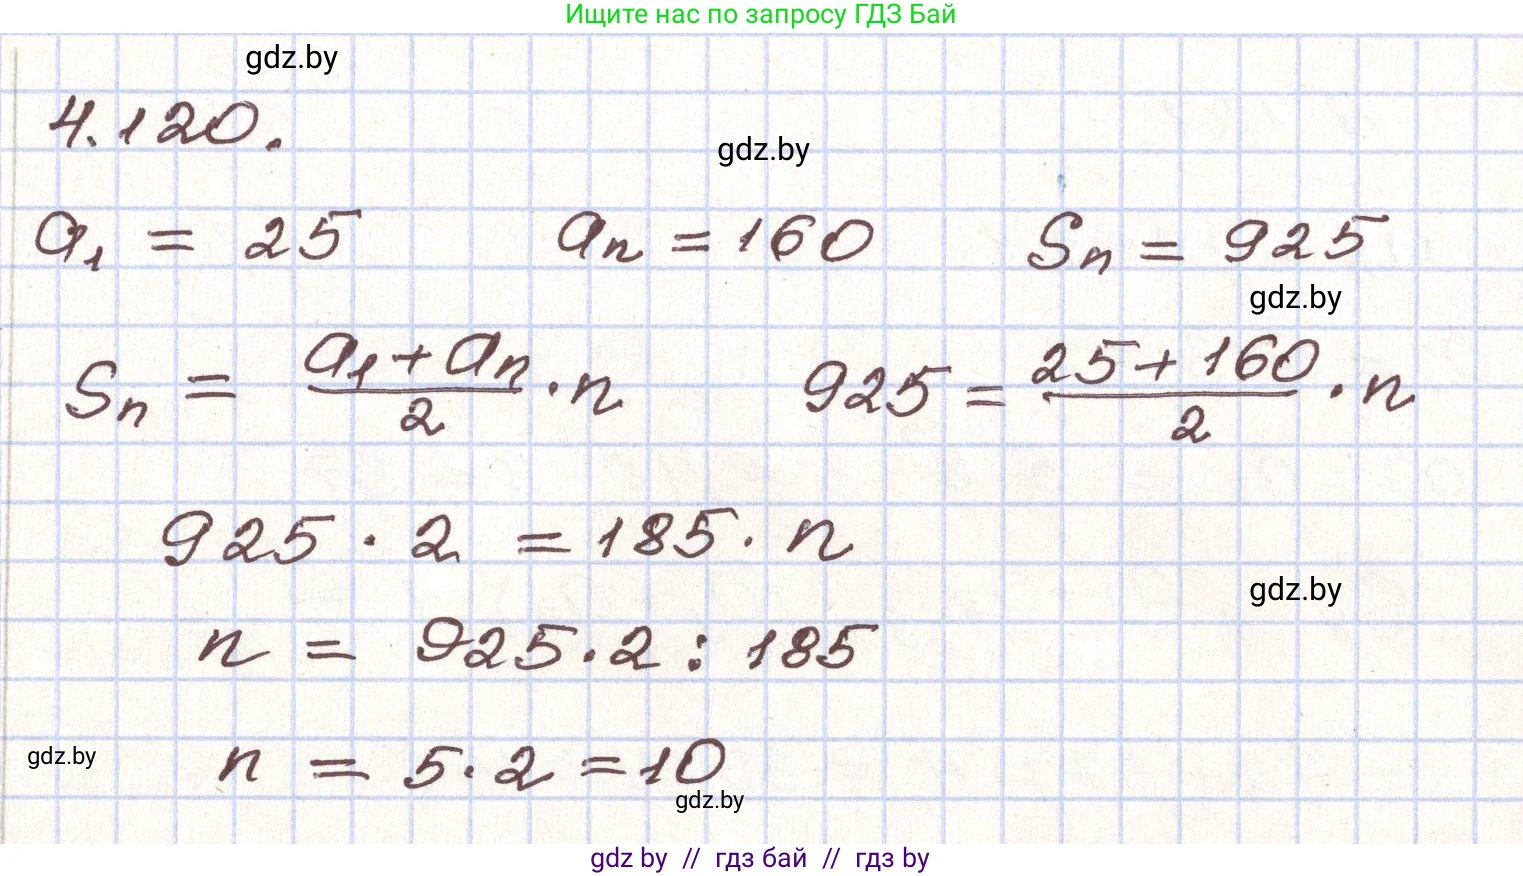 Ищите нас по запросу ГДЗ Бай
gdz.by
4.120.
gdz.by
a₁ = 25 aₙ = 160 Sₙ = 925
gdz.by
Sₙ = (a₁ + aₙ)/2 · n 925 = (25 + 160)/2 · n
925 · 2 = 185 · n
gdz.by
n = 925 · 2 : 185
gdz.by
n = 5 · 2 = 10
gdz.by
gdz by // гдз бай // гдз by